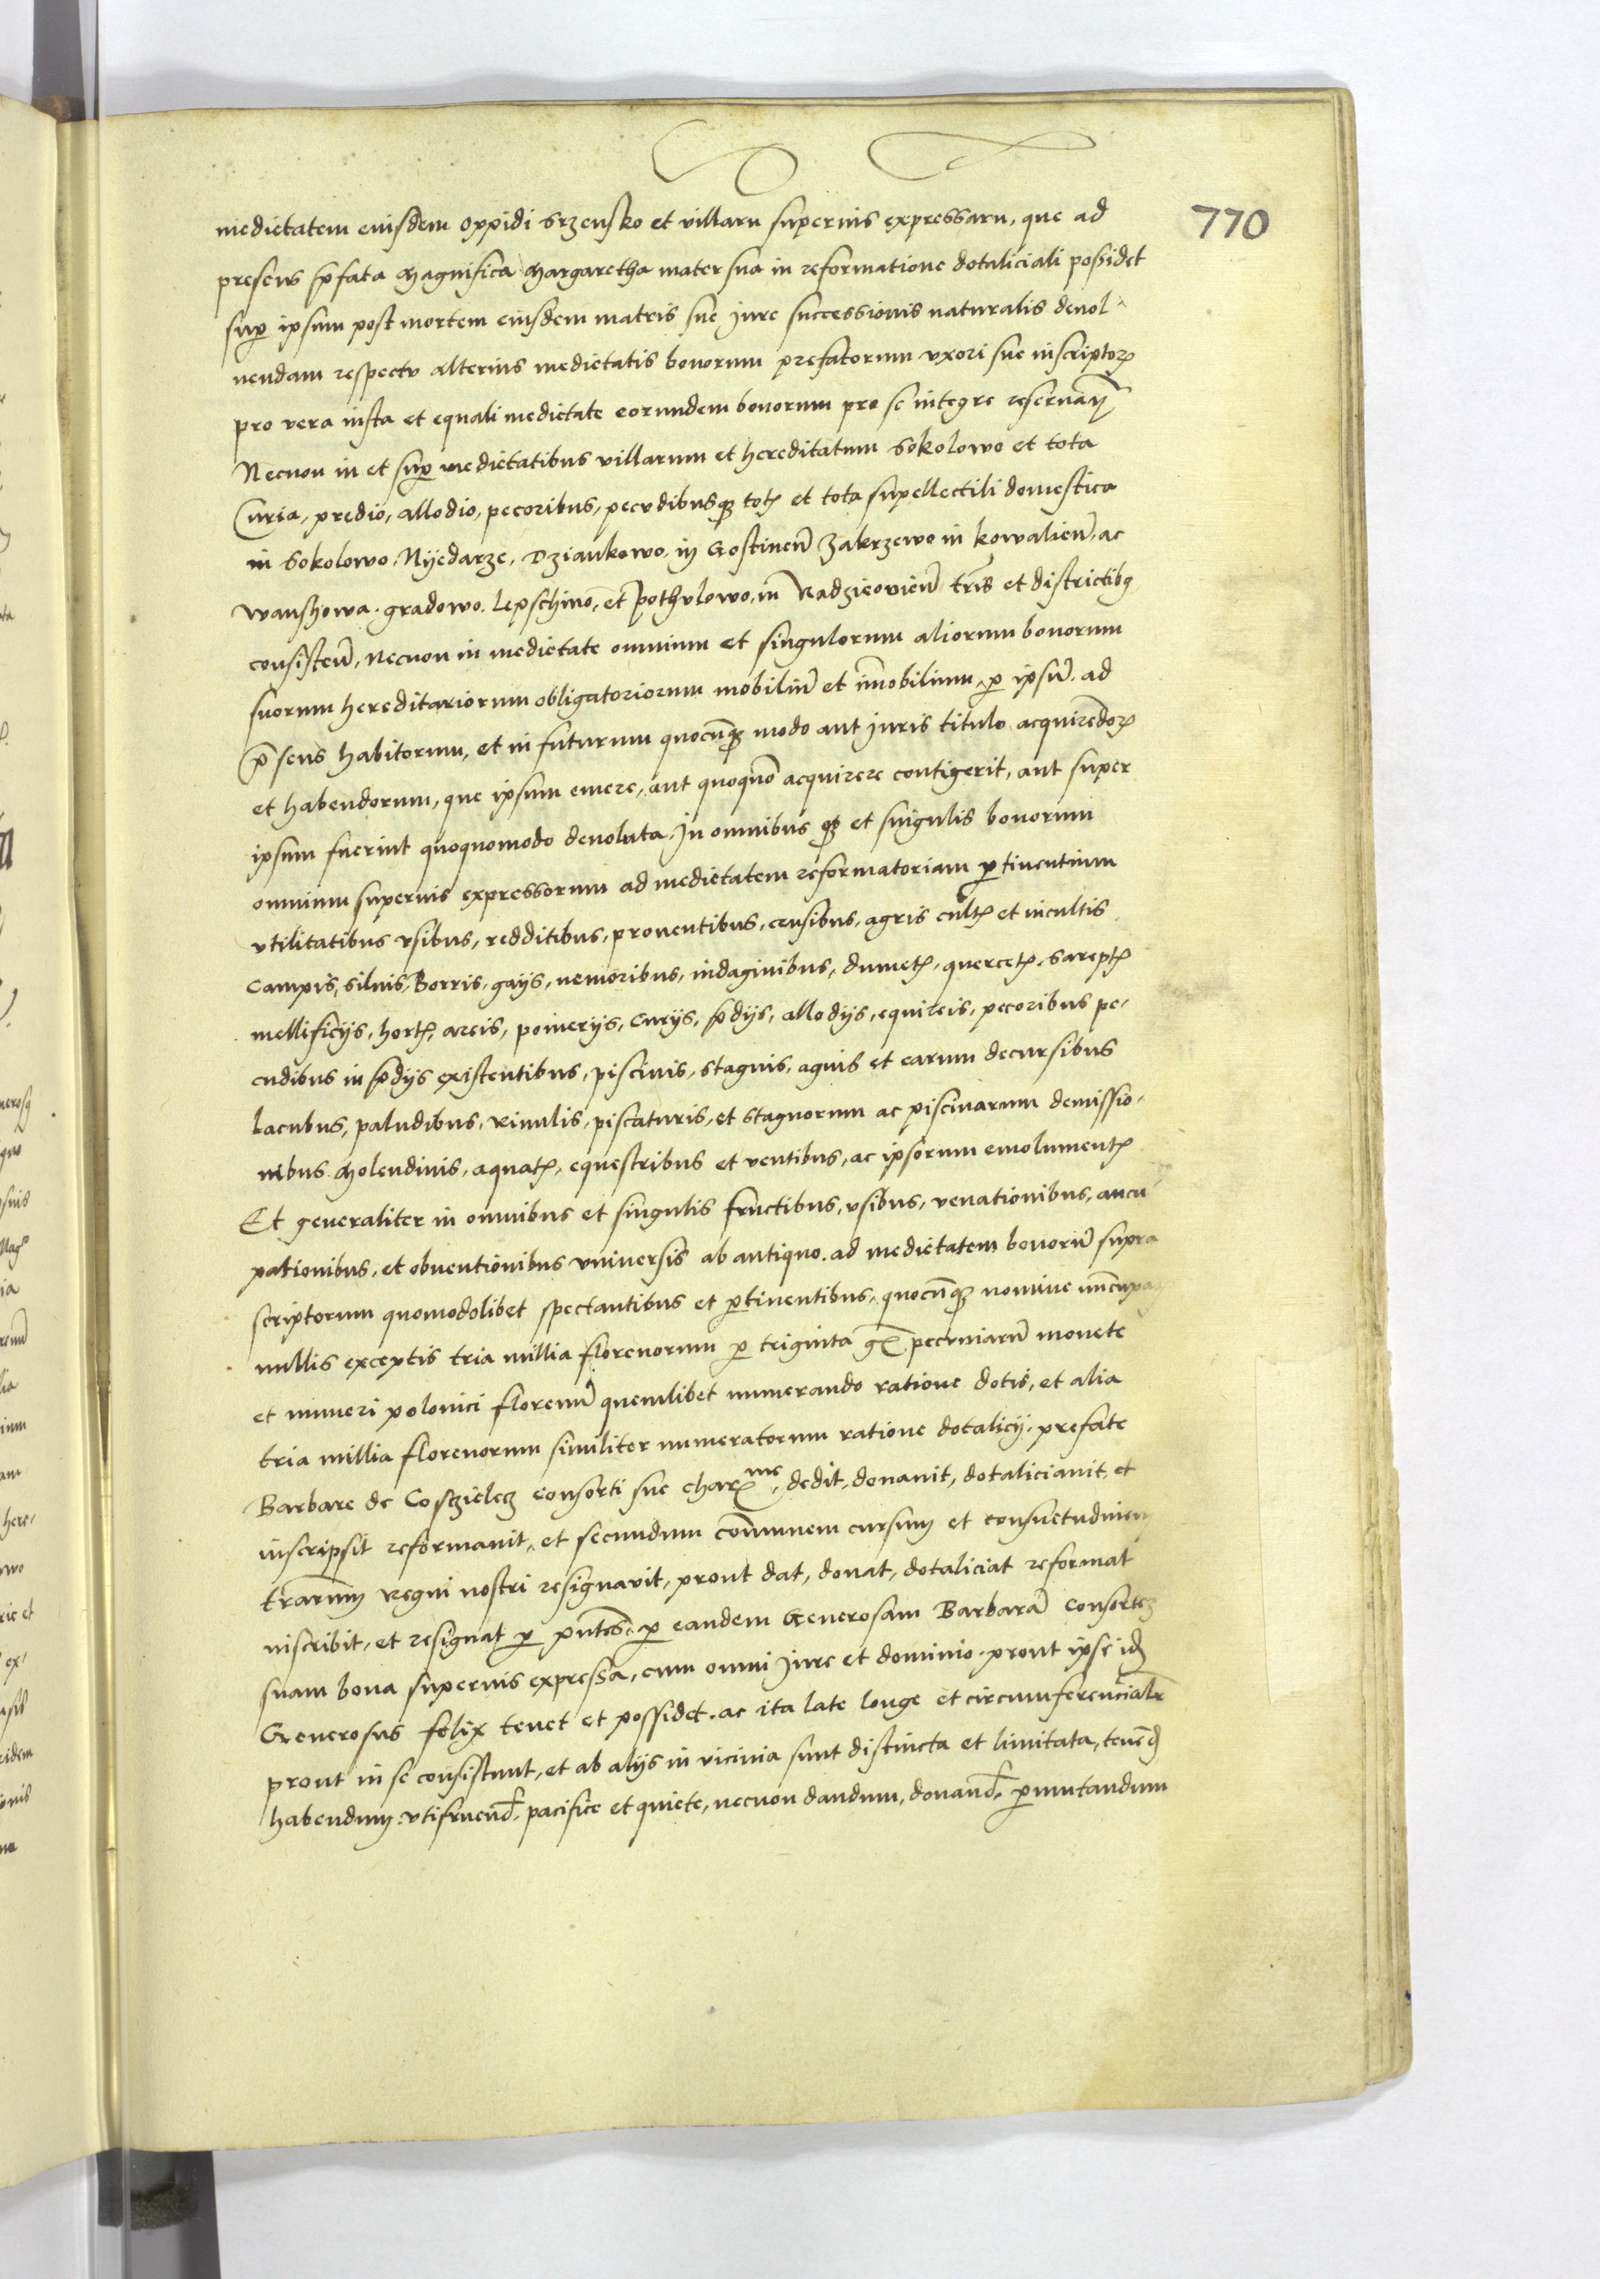 770
medietatem eiusdem oppidi Srzensko et villaru superius expressaru, que ad
presens p̄fata Magnifica Margaretha mater sua in reformatione dotaliciali possidet
sup ipsum post mortem eiusdem matris sue jure successionis naturalis deuol-
uendam respectu alterius medietatis bonorum prefatorum vxori sue inscriptoꝝ
pro vera iusta et equali medietate eorundem bonorum pro se integre
Necnon in et sup medietatibus villarum et hereditatum Sokolowo et tota
Curia, predio, allodio, pecoribus, pecudibusqȝ totȝ et tota supellectili domestica
in Sokolowo, Nyedarze, Dziankowo, in Gostinen̄ Zakrzewo in kowalien̄, ac
Wanshowa, gradowo, Lepschino, et Pothvlowo, in Radzieovien̄ tr̄is et districtibꝰ
consisten̄, necnon in medietate omnium et singulorum aliorum bonorum
suorum hereditariorum obligatoriorum mobiliū et im̄obilium, ꝑ ipsū, ad
p̄sens habitorum, et in futurum quocūqȝ modo aut juris titulo acquirēdoꝝ
et habendorum, que ipsum emere, aut quoquō acquirere contigerit, aut super
ipsum fuerint quoquomodo deuoluta, In omnibus qȝ et singulis bonorum
omnium superius expressorum ad medietatem reformatoriam ꝑtinentium
vtilitatibus vsibus, redditibus, prouentibus, censibus, agris cultȝ et incultis
Campis, siluis, Borris, gays, nemoribus, indaginibus, dumetȝ, quercetȝ, Sareptȝ
mellificijs, hortȝ, areis, pomerijs, Curijs, p̄dijs, allodijs, equireis, pecoribus pe-
cudibus in p̄dijs existentibus, piscinis, stagnis, aquis et earum decursibus
lacubus, paludibus, riuulis, piscaturis, et stagnorum ac piscinarum demissio-
nibus Molendinis, aquatȝ, equestribus et ventibus, ac ipsorum emolumentȝ
Et generaliter in omnibus et singulis fructibus, vsibus, venationibus, aucu-
pationibus, et obuentionibus vniuersis ab antiquo ad medietatem bonorū supra
scriptorum quomodolibet spectantibus et ꝑtinentibus, quocūqȝ nomine
nullis exceptis tria millia florenorum ꝑ triginta gȝ pecuniarū monete
et numeri polonici florenū quemlibet numerando ratione dotis, et alia
tria millia florenorum similiter numeratorum ratione dotalicij, prefate
Barbare de Coszielecz consorti sue charme, dedit, donauit, dotaliciauit, et
inscripsit reformauit, et secundum com̄unem cursum et consuetudinem
tr̄arum Regni nostri resignavit, prout dat, donat, dotaliciat reformat
inscribit, et resignat ꝑ pn̄tes, ꝑ eandem Generosam Barbarā consortē
suam bona superius expressa, cum omni jure et dominio, prout ipse id̄
Generosus felix tenet et possidet, ac ita late longe et circumferencialr̄
prout in se consistunt, et ab alijs in vicinia sunt distincta et limitata, tenēd̄
habendum, vtifruend̄, pacifice et quiete, necnon dandum, donand̄, ꝑmutandum